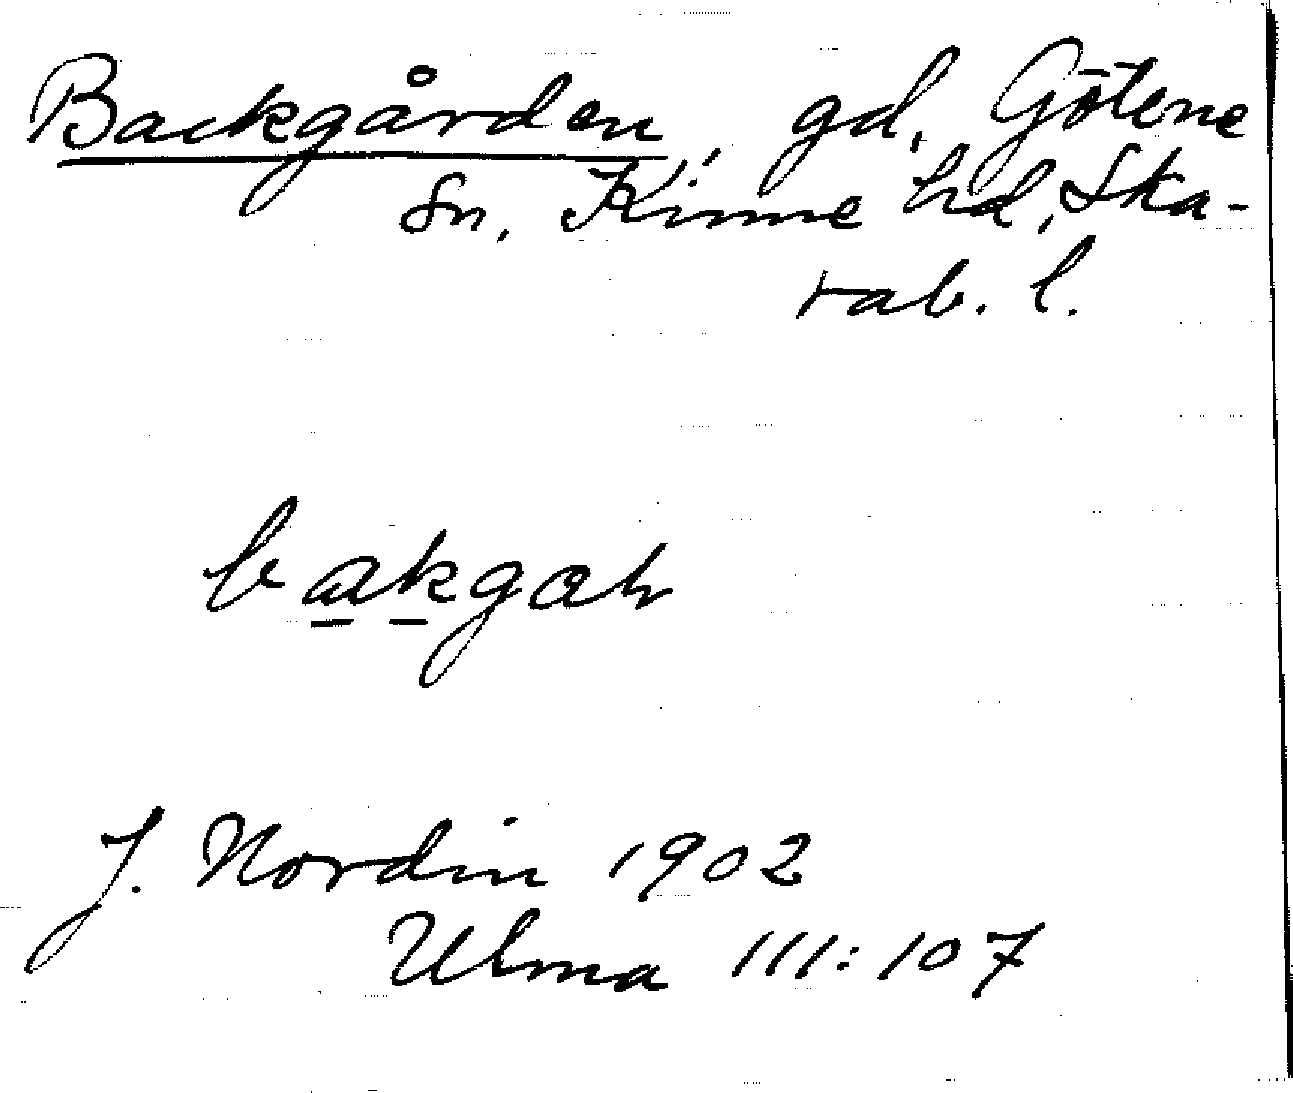 Backgården, gd, Götene
sn, Kinne hd, Ska-
rab. l.
bakgah
J. Nordin 1902
Ulma 111:107